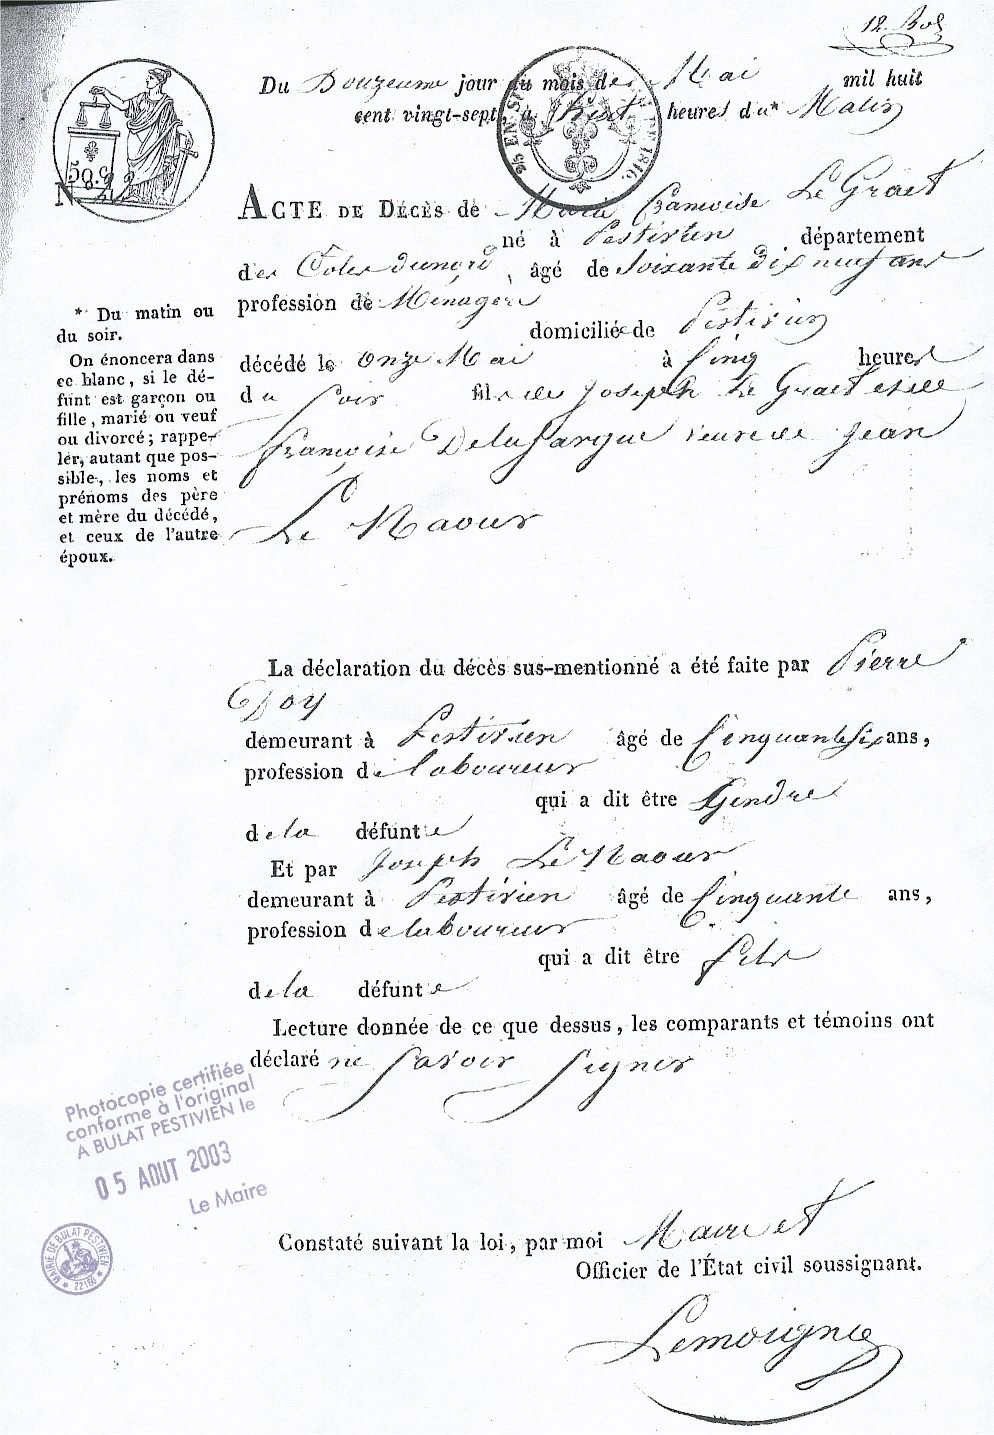 12. Rol
Du Douzeieme jour du mois de Mai mil huit
cent vingt-sept à huit heures du* Matin
50.c
N
25 EN SUS
1816.
ACTE DE DÉCÈS de Marie Francoise Le Graet
né à Pestivien département
des Côtes du nord, âgé de Soixante dix neuf ans
profession de Ménagere
domiciliée de Pestivien
décédé le onze Mai à Cinq heures
du Soir fille de Joseph Le Graet et de
françoise Delafargue veuve de Jean
Le Naour
* Du matin ou
du soir.
On énoncera dans
ce blanc, si le dé-
funt est garçon ou
fille, marié ou veuf
ou divorcé; rappe-
ler, autant que pos-
sible, les noms et
prénoms des père
et mère du décédé,
et ceux de l'autre
époux.
La déclaration du décès sus-mentionné a été faite par Pierre
demeurant à Pestivien âgé de Cinquante six ans,
profession de laboureur
qui a dit être Gendre
de la défunte
Et par Joseph Le Naour
demeurant à Pestivien âgé de Cinquante ans,
profession de laboureur
qui a dit être fils
de la défunte
Lecture donnée de ce que dessus, les comparants et témoins ont
déclaré ne Savoir Signer
Photocopie certifiée
conforme à l'original
A BULAT PESTIVIEN le
05 AOUT 2003
Le Maire
MAIRIE DE BULAT PESTIVIEN
22160
Constaté suivant la loi, par moi Maire et
Officier de l'État civil soussignant.
Lemoigne